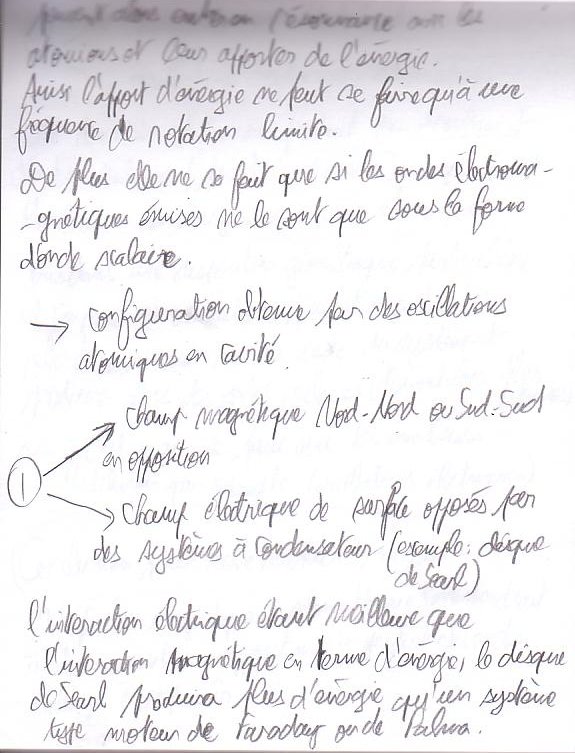 peuvent alors entrer en résonnance avec les
atomions et leur apporter de l'énergie.
Ainsi l'apport d'énergie ne peut se faire qu'à une
fréquence de rotation limite.
De plus elle ne se fait que si les ondes électroma-
-gnétiques émises ne le sont que sous la forme
d'onde scalaire.
→ configuration obtenue par des oscillations
atomiques en cavité.
① → champ magnétique Nord-Nord ou Sud-Sud
en opposition
→ Champ électrique de surface opposés par
des systèmes à condensateur (exemple: disque
de Searl)
l'interaction électrique étant meilleure que
l'interaction magnétique en terme d'énergie, le disque
de Searl produira plus d'énergie qu'un système
type moteur de Faraday ou de Palma.